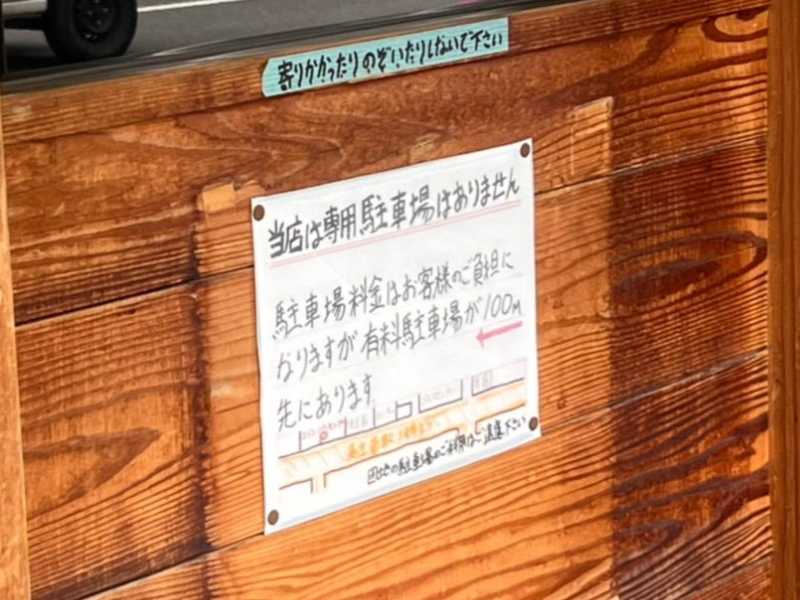 寄りかかったりのぞいたりしないで下さい
当店は専用駐車場はありません
駐車場料金はお客様のご負担に
なりますが有料駐車場が100m
先にあります
の駐車場のご利用はご遠慮下さい